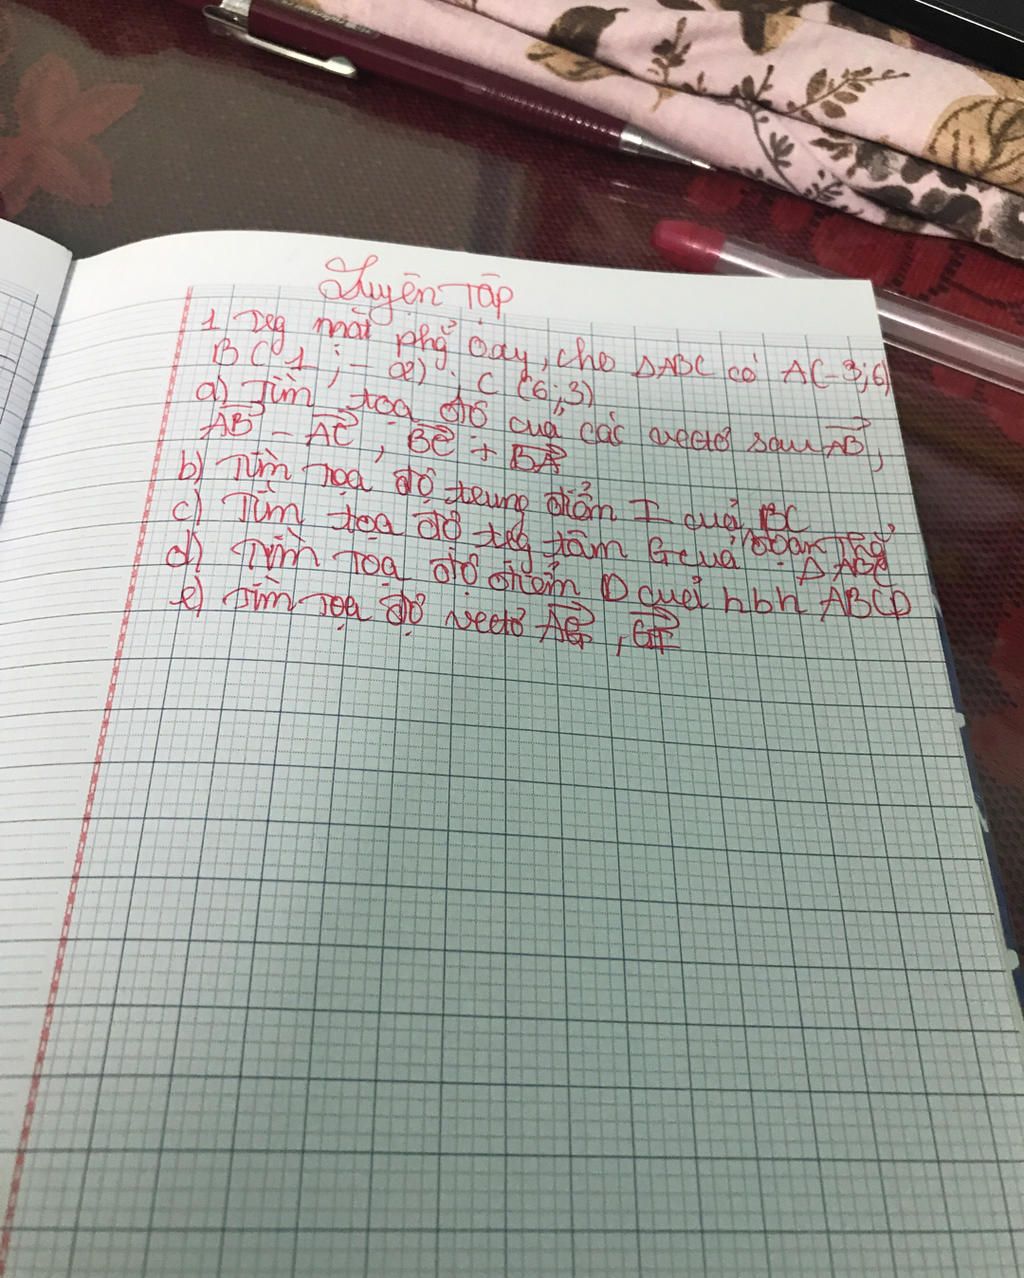 Luyện Tập
1 Trg mặt phg̉ Oxy, cho ΔABC có A(-3;6)
B(1; -2); C(6;3)
a) Tìm tọa độ của các vectơ sau AB,
AB - AC, BC + BA
b) Tìm tọa độ trung điểm I của đoạn thg̉ BC
c) Tìm tọa độ trg tâm G của ΔABC
d) Tìm tọa độ điểm D của hbh ABCD
e) Tìm tọa độ vectơ AG,